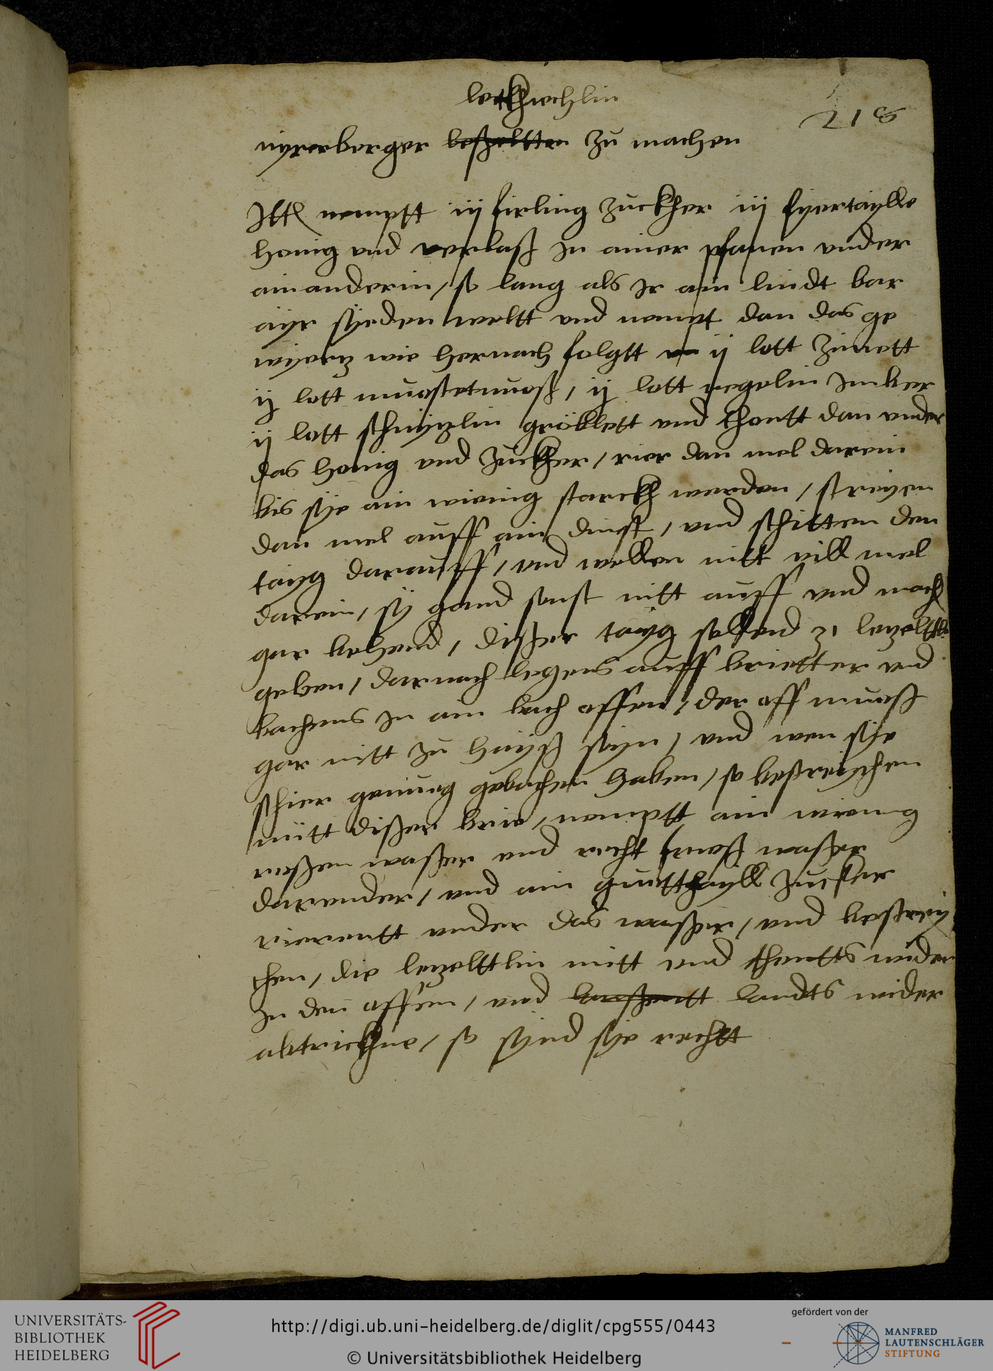 letkhiechlin
218
nyrrerberger beßeltten zu machen
Itt nemptt iij firling zuckher iij fyertaylle
honig vnd verlaß in ainer pfanen vnder
ainanderin / so lang als ir ain lindt bar
ayr syeden weltt vnd nempt dan das ge
wyertz wie hernach folgtt ij lott zimett
ij lott muostetnuoß / ij lott negelin imber
ij lott schnyzlin gröblett vnd thontt dan vnder
das honig vnd zuckher / rier dan mel darein
bis sye ain wienig starckh werden / streyen
dan mel auff ain dinst / vnd schitten den
tayg darauff / vnd wellen nitt vill mel
darein / sy gand sonst nitt auff vnd mach
gar behend / dißer tayg sollend zu lezeltt
geben / darnach legens auff brietter vnd
bachens in ain bach offen / der off muoß
gar nitt zu hayß seyn / vnd wen sye
schier genueg gebachen haben / so bestreychen
mitt dißer brie / nemptt ain wienig
roßen waßer vnd recht waßer
darunder / vnd ain guottthayll zucker
vierentt vnder das waßer / vnd bestrey
chen / die lezelttlin mitt vnd thontts wider
in den offen / vnd landts wider
abtricknne / so synd sye rechtt
UNIVERSITÄTS-
BIBLIOTHEK
HEIDELBERG
http://digi.ub.uni-heidelberg.de/diglit/cpg555/0443
© Universitätsbibliothek Heidelberg
gefördert von der
MANFRED
LAUTENSCHLÄGER
STIFTUNG